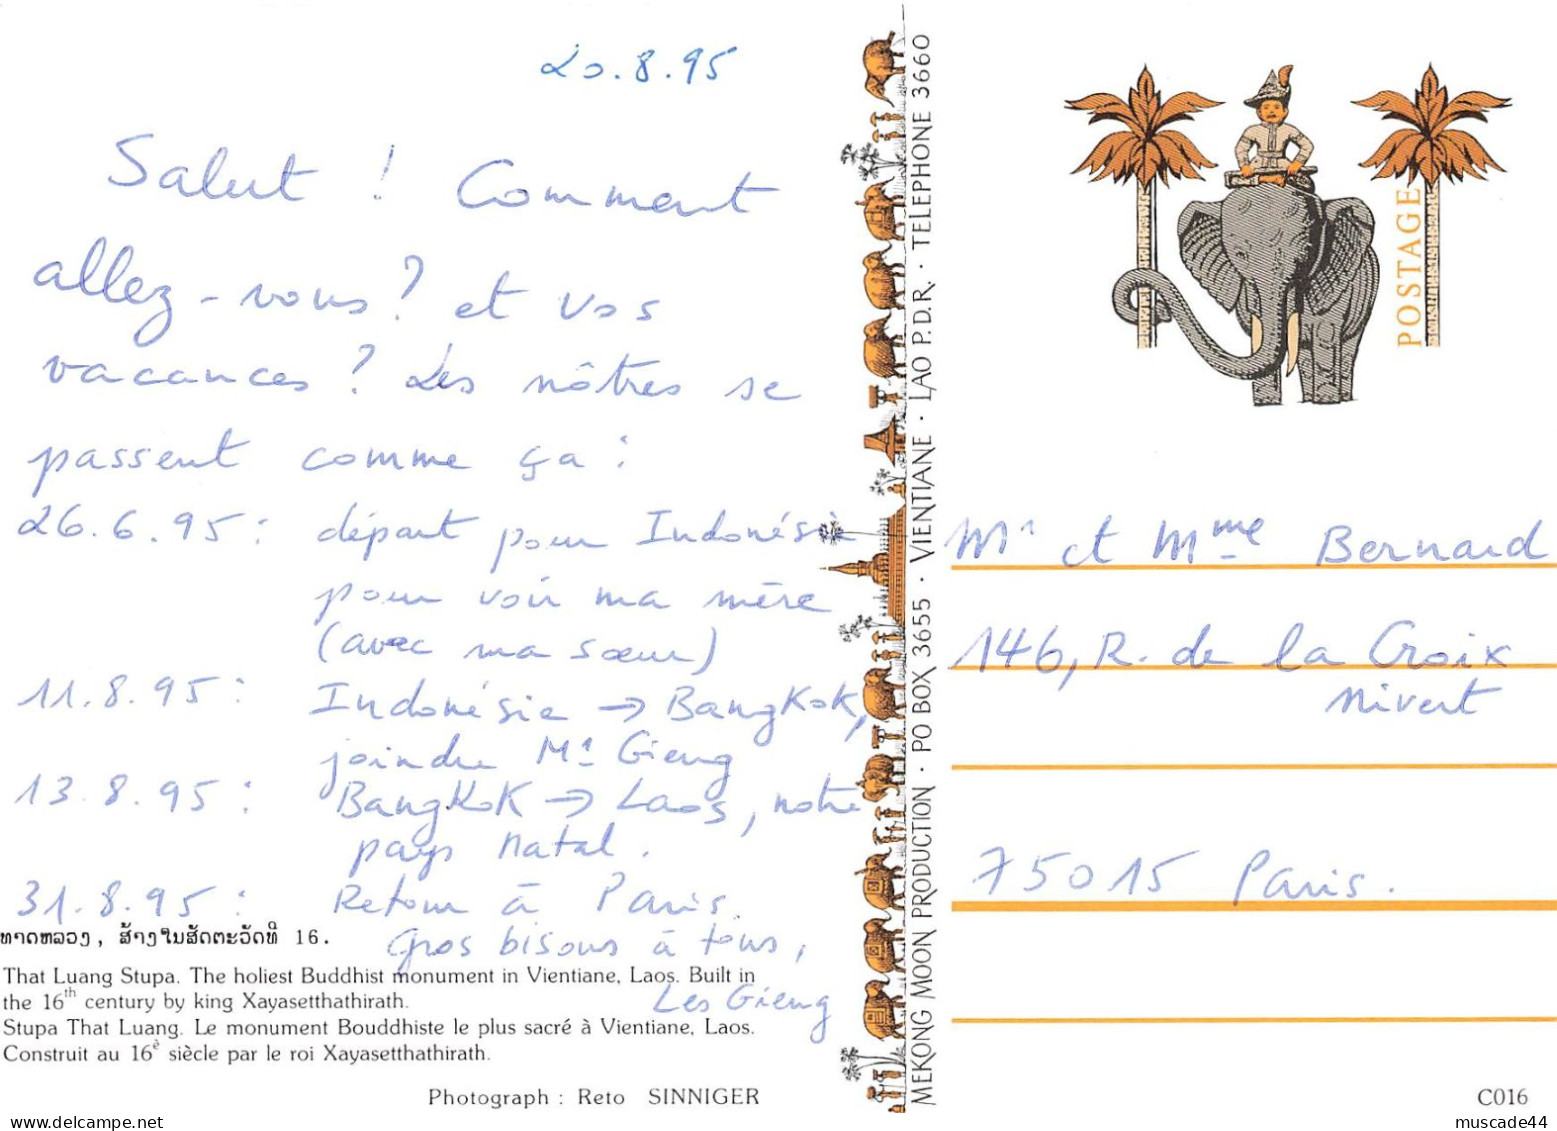 20.8.95
Salut ! Comment
allez-vous ? et vos
vacances ? Les nôtres se
passent comme ça :
26.6.95 : départ pour Indonésie
pour voir ma mère
(avec ma sœur)
11.8.95 : Indonésie → Bangkok,
joindre Mr Gieng
13.8.95 : Bangkok → Laos, notre
pays natal.
31.8.95 : Retour à Paris.
Gros bisous à tous,
Les Gieng
ທາດຫລວງ, ສ້າງໃນສັດຕະວັດທີ 16.
That Luang Stupa. The holiest Buddhist monument in Vientiane, Laos. Built in
the 16th century by king Xayasetthathirath.
Stupa That Luang. Le monument Bouddhiste le plus sacré à Vientiane, Laos.
Construit au 16è siècle par le roi Xayasetthathirath.
Photograph : Reto SINNIGER
MEKONG MOON PRODUCTION · PO BOX 3655 · VIENTIANE · LAO P.D.R. · TELEPHONE 3660
POSTAGE
Mr et Mme Bernard
146, R. de la Croix
Nivert
75015 Paris.
C016
muscade44